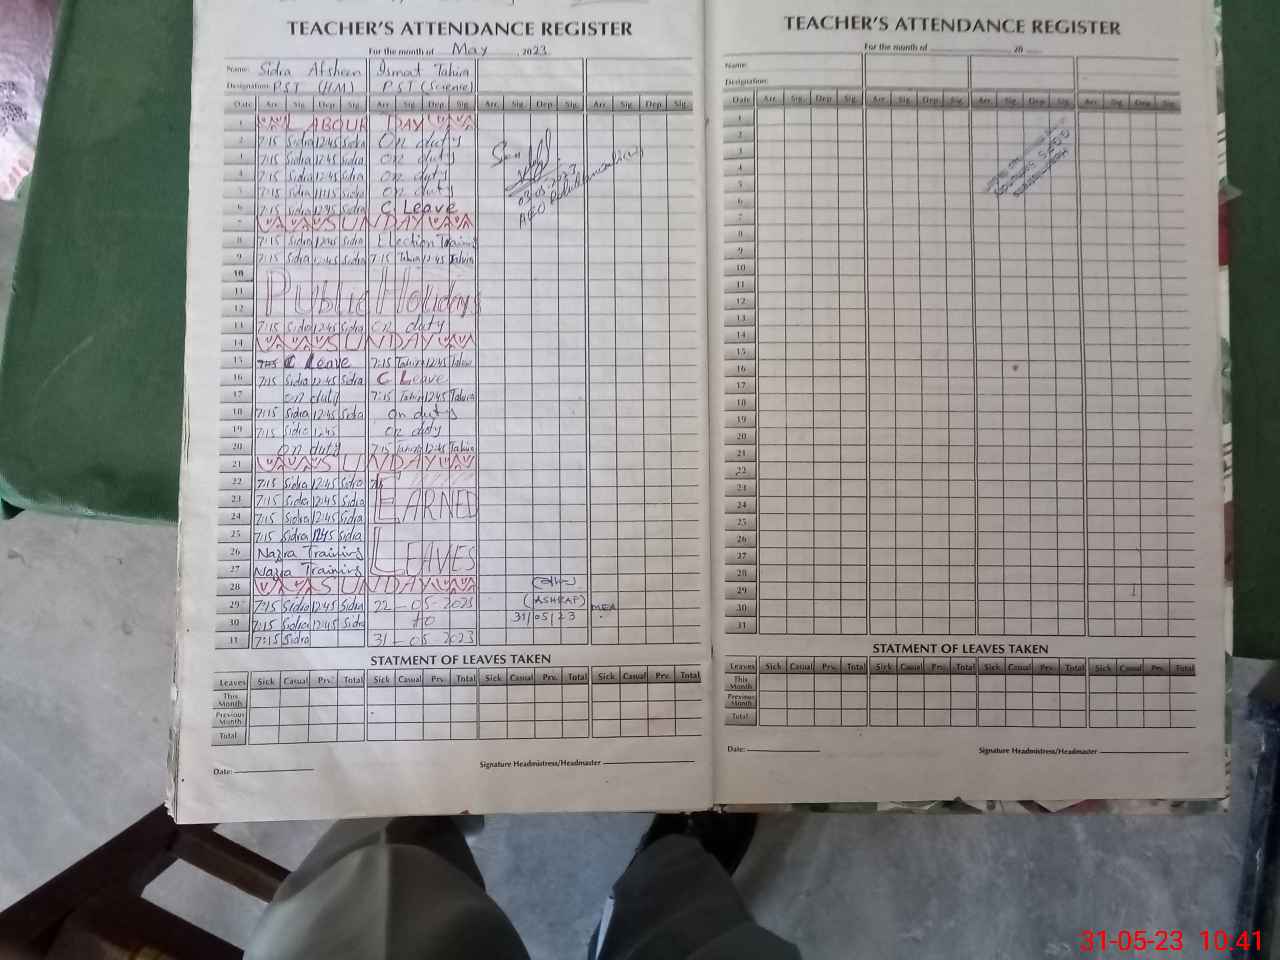 TEACHER'S ATTENDANCE REGISTER
For the month of May 2023
Name: Sidra Afsheen Ismat Tahira
Designation: PST (HM) PST (Science)
Date Arr. Sig. Dep. Sig. Arr. Sig. Dep. Sig. Arr. Sig. Dep. Sig. Arr. Sig. Dep. Sig.
1 LABOUR DAY
2 7:15 Sidra 12:45 Sidra On duty
3 7:15 Sidra 12:45 Sidra On duty
4 7:15 Sidra 12:45 Sidra On duty
5 7:15 Sidra 11:15 Sidra On duty
6 7:15 Sidra 12:45 Sidra C Leave
7 SUNDAY
8 7:15 Sidra 12:45 Sidra Election Training
9 7:15 Sidra 12:45 Sidra 7:15 Tahira 12:45 Tahira
10
11 Public Holidays
12
13 7:15 Sidra 12:45 Sidra on duty
14 SUNDAY
15 C Leave 7:15 Tahira 12:45 Tahira
16 7:15 Sidra 12:45 Sidra C Leave
17 on duty 7:15 Tahira 12:45 Tahira
18 7:15 Sidra 12:45 Sidra on duty
19 7:15 Sidra 12:45 on duty
20 on duty 7:15 Tahira 12:45 Tahira
21 SUNDAY
22 7:15 Sidra 12:45 Sidra
23 7:15 Sidra 12:45 Sidra EARNED
24 7:15 Sidra 12:45 Sidra
25 7:15 Sidra 12:45 Sidra
26 Nazra Training LEAVES
27 Nazra Training
28 SUNDAY
29 7:15 Sidra 12:45 Sidra 22-05-2023 (ASHRAF) MEA
30 7:15 Sidra 12:45 Sidra to 31/05/23
31 7:15 Sidra 31-05 2023
STATMENT OF LEAVES TAKEN
Leaves Sick Casual Prv. Total Sick Casual Prv. Total Sick Casual Prv. Total Sick Casual Prv. Total
This Month
Previous Month
Total
Date:
Signature Headmistress/Headmaster
TEACHER'S ATTENDANCE REGISTER
For the month of 20
Name:
Designation:
Date Arr. Sig. Dep. Sig. Arr. Sig. Dep. Sig. Arr. Sig. Dep. Sig. Arr. Sig. Dep. Sig.
1
2
3
4
5
6
7
8
9
10
11
12
13
14
15
16
17
18
19
20
21
22
23
24
25
26
27
28
29
30
31
STATMENT OF LEAVES TAKEN
Leaves Sick Casual Prv. Total Sick Casual Prv. Total Sick Casual Prv. Total Sick Casual Prv. Total
This Month
Previous Month
Total
Date:
Signature Headmistress/Headmaster
31-05-23 10:41